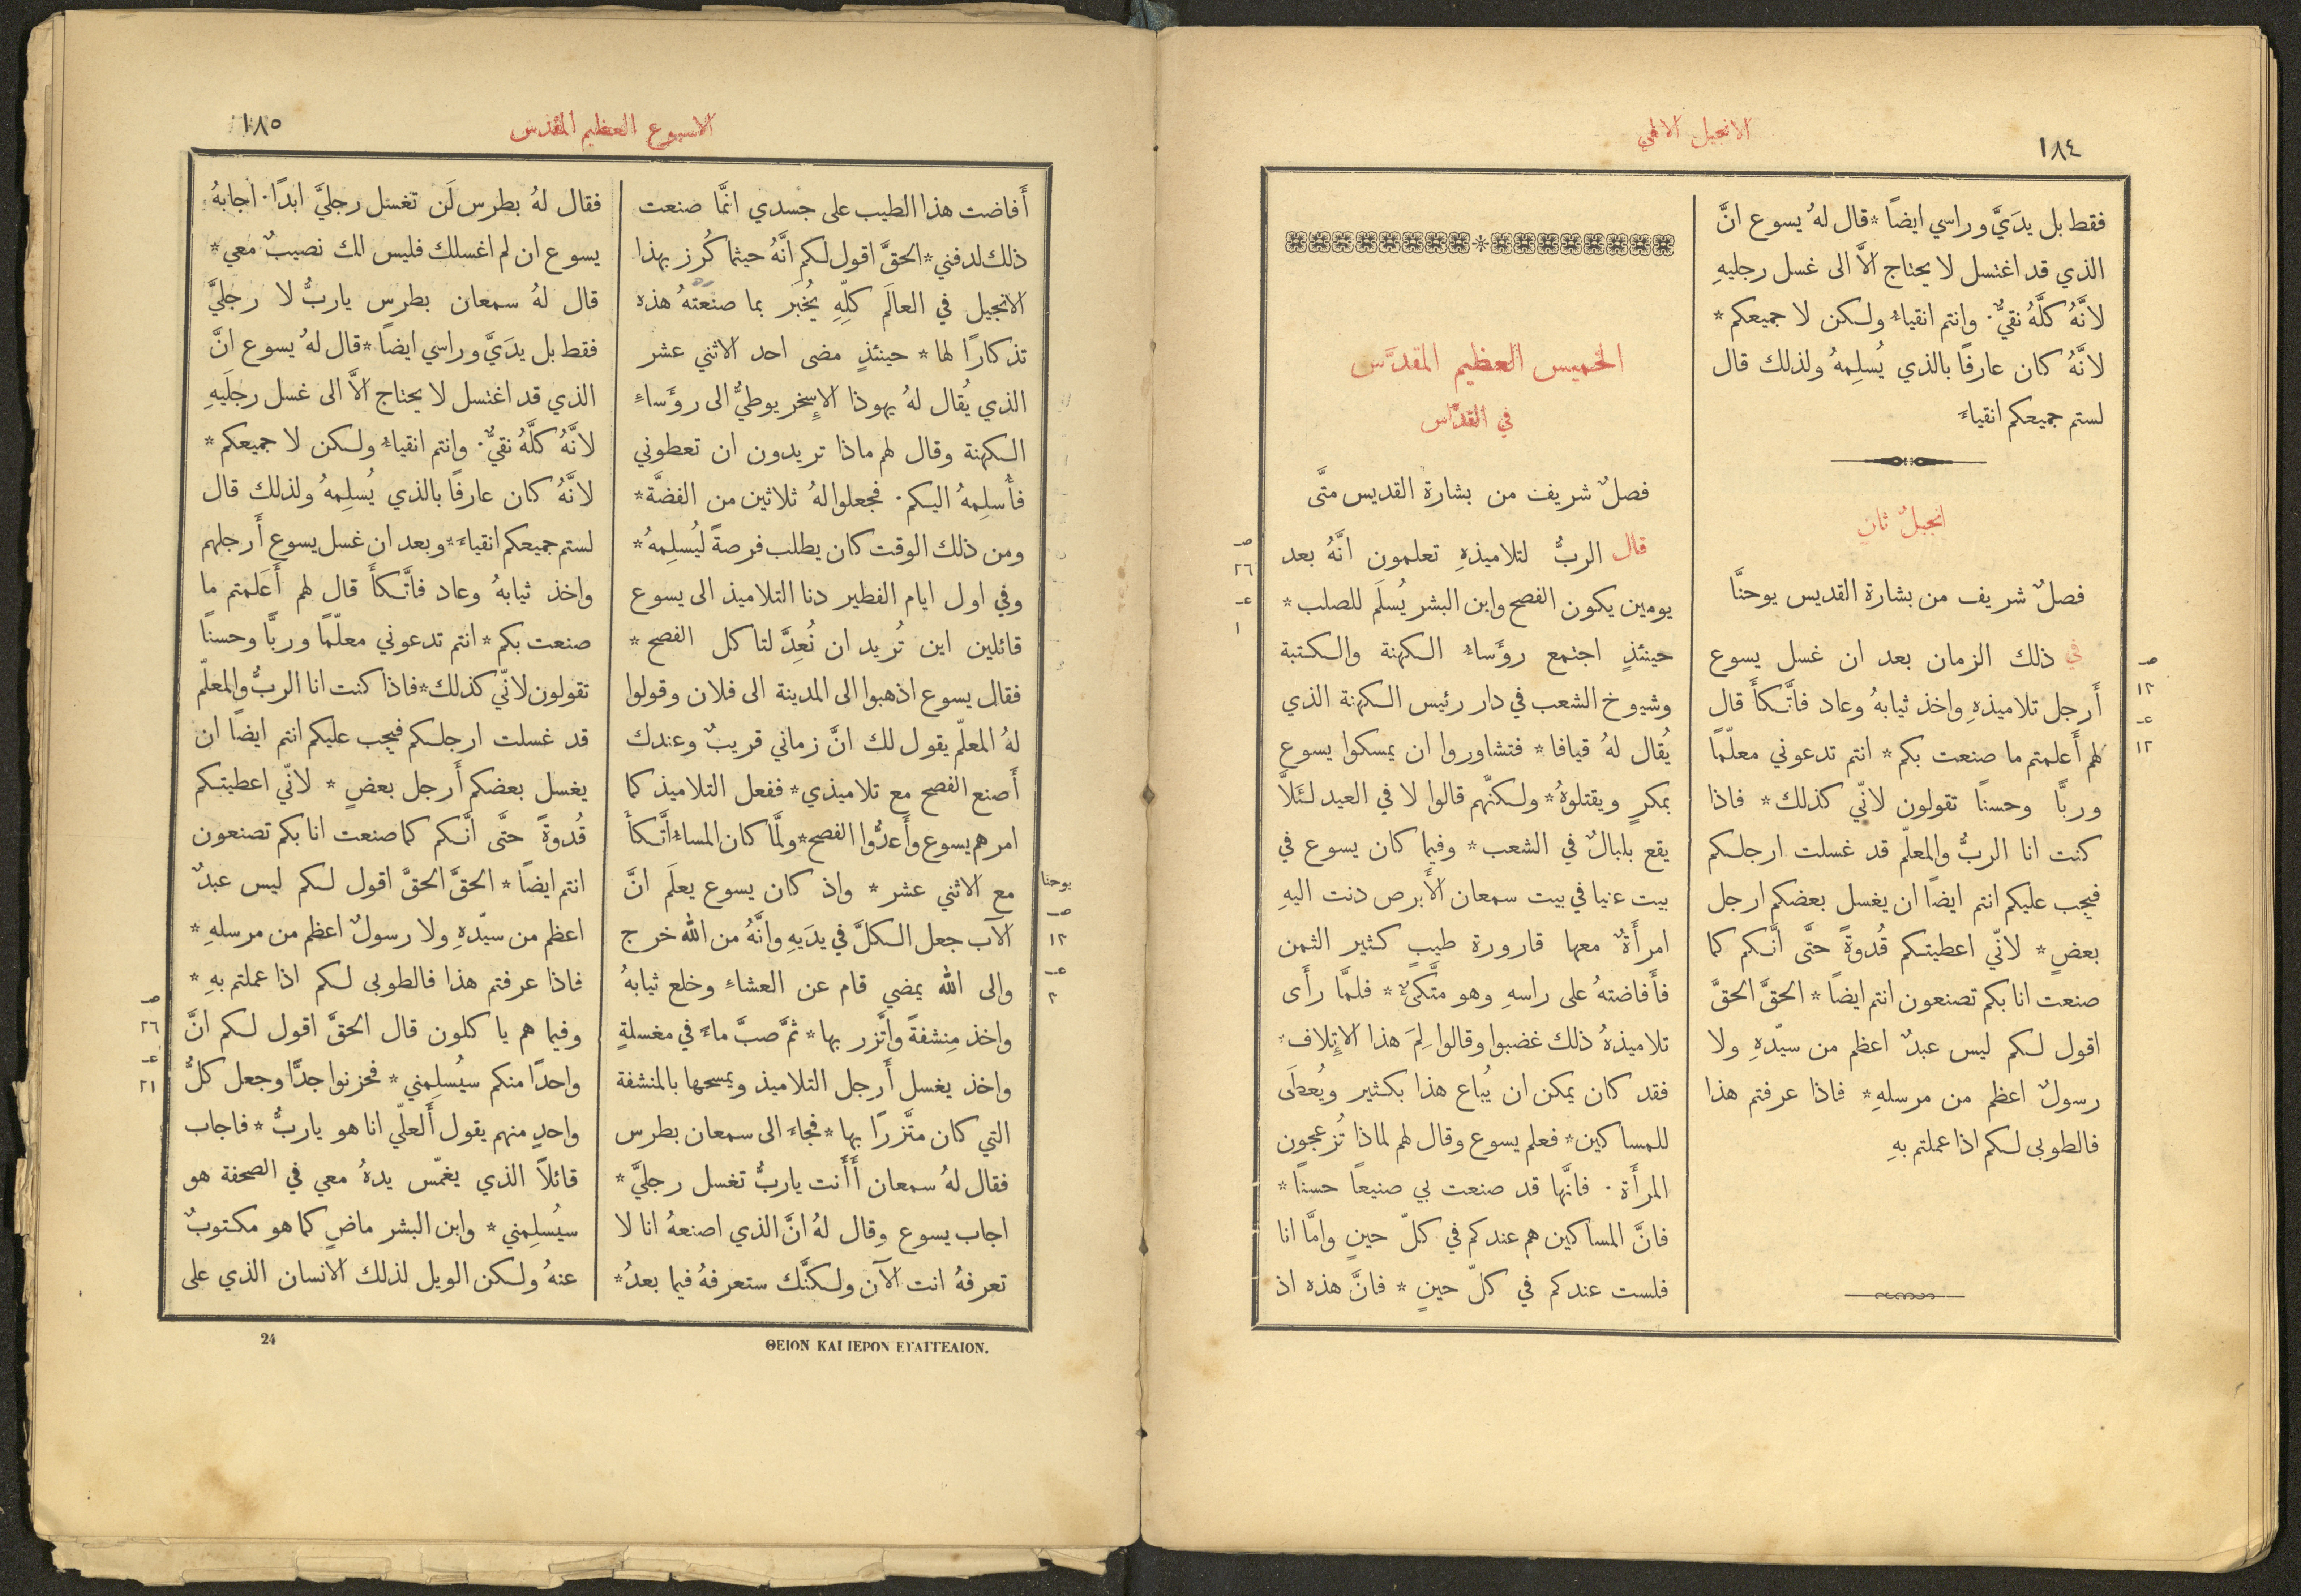 ١٨٤
الانجيل الالهي
فقط بل يدَيَّ وراسي ايضاً * قال لهُ يسوع انَّ
الذي قد اغتسل لا يحتاج الاَّ الى غسل رجليهِ
لانَّهُ كلَّهُ نقيٌّ. وانتم انقياءُ ولكن لا جميعكم *
لانَّهُ كان عارفًا بالذي يُسلِمهُ ولذلك قال
لستم جميعكم انقياءَ
انجيلٌ ثانٍ
فصلٌ شريف من بشارة القديس يوحنَّا
في ذلك الزمان بعد ان غسل يسوع
أَرجل تلاميذهِ واخذ ثيابهُ وعاد فاتَّكأَ قال
لهم أَعلمتم ما صنعت بكم * انتم تدعوني معلّمًا
وربًّا وحسنًا تقولون لانّي كذلك * فاذا
كنت انا الربُّ والمعلّم قد غسلت ارجلكم
فيجب عليكم انتم ايضًا ان يغسل بعضكم ارجل
بعضٍ * لانّي اعطيتكم قُدوةً حتَّى انَّكم كما
صنعت انا بكم تصنعون انتم ايضاً * الحقَّ الحقَّ
اقول لكم ليس عبدٌ اعظم من سيّدهِ ولا
رسولٌ اعظم من مرسلهِ * فاذا عرفتم هذا
فالطوبى لكم اذا عملتم بهِ
صـ
١٣
عـ
١٢
الخميس العظيم المقدَّس
في القدَّاس
فصلٌ شريف من بشارة القديس متَّى
قال الربُّ لتلاميذهِ تعلمون انَّهُ بعد
يومين يكون الفصح وابن البشر يُسلَم للصلب *
حينئذٍ اجتمع رؤَساءُ الكهنة والكتبة
وشيوخ الشعب في دار رئيس الكهنة الذي
يُقال لهُ قيافا * فتشاوروا ان يمسكوا يسوع
بمكرٍ ويقتلوهُ * ولكنّهم قالوا لا في العيد لئَلاَّ
يقع بلبالٌ في الشعب * وفيما كان يسوع في
بيت عنيا في بيت سمعان الأَبرص دنت اليهِ
امرأَةٌ معها قارورة طيبٍ كثير الثمن
فأَفاضتهُ على راسهِ وهو متَّكئٌ * فلمَّا رأَى
تلاميذهُ ذلك غضبوا وقالوا لِمَ هذا الاتِلاف *
فقد كان يمكن ان يُباع هذا بكثير ويُعطَى
للمساكين * فعلم يسوع وقال لهم لماذا تُزعجون
المرأَة. فانَّها قد صنعت بي صنيعاً حسنًا *
فانَّ المساكين هم عندكم في كلّ حينٍ وامَّا انا
فلست عندكم في كلّ حينٍ * فانَّ هذه اذ
صـ
٢٦
عـ
١
الاسبوع العظيم المقدس
١٨٥
أَفاضت هذا الطيب على جسدي انمَّا صنعت
ذلك لدفني * الحقَّ اقول لكم انَّهُ حيثما كُرز بهذا
الانجيل في العالَم كلِّهِ يُخبَر بما صنعتهُ هذه
تذكارًا لها * حينئذٍ مضى احد الاثني عشر
الذي يُقال لهُ يهوذا الاِسخريوطيُّ الى رؤَساءِ
الكهنة وقال لهم ماذا تريدون ان تعطوني
فأُسلِمهُ اليكم. فجعلوا لهُ ثلاثين من الفضَّة *
ومن ذلك الوقت كان يطلب فرصةً ليُسلِمهُ *
وفي اول ايام الفطير دنا التلاميذ الى يسوع
قائلين اين تُريد ان نُعِدَّ لتاكل الفصح *
فقال يسوع اذهبوا الى المدينة الى فلان وقولوا
لهُ المعلّم يقول لك انَّ زماني قريبٌ وعندك
أَصنع الفصح مع تلاميذي * ففعل التلاميذ كما
امرهم يسوع وأَعدُّوا الفصح * ولَمَّا كان المساءُ اتَّكأَ
مع الاثني عشر * واذ كان يسوع يعلَم انَّ
الآب جعل الكلَّ في يدَيهِ وانَّهُ من الله خرج
والى الله يمضي قام عن العشاءِ وخلع ثيابهُ
واخذ مِنشفةً واتَّزر بها * ثمَّ صبَّ ماءً في مغسلةٍ
واخذ يغسل أَرجل التلاميذ ويمسحها بالمنشفة
التي كان متَّزرًا بها * فجاءَ الى سمعان بطرس
فقال لهُ سمعان أَأَنت ياربُّ تغسل رجليَّ *
اجاب يسوع وقال لهُ انَّ الذي اصنعهُ انا لا
تعرفهُ انت الآن ولكنَّك ستعرفهُ فيما بعدُ *
يوحنا
صـ
١٣
عـ
٣
فقال لهُ بطرس لَن تغسل رجليَّ ابدًا. اجابهُ
يسوع ان لم اغسلك فليس لك نصيبٌ معي *
قال لهُ سمعان بطرس ياربُّ لا رجليَّ
فقط بل يدَيَّ وراسي ايضاً * قال لهُ يسوع انَّ
الذي قد اغتسل لا يحتاج الاَّ الى غسل رجلَيهِ
لانَّهُ كلَّهُ نقيٌّ. وانتم انقياءُ ولكن لا جميعكم *
لانَّهُ كان عارفًا بالذي يُسلِمهُ ولذلك قال
لستم جميعكم انقياءَ * وبعد ان غسل يسوع أَرجلهم
واخذ ثيابهُ وعاد فاتَّكأَ قال لهم أَعَلمتم ما
صنعت بكم * انتم تدعوني معلّمًا وربًّا وحسنًا
تقولون لانّي كذلك * فاذا كنت انا الربُّ والمعلّم
قد غسلت ارجلكم فيجب عليكم انتم ايضاً ان
يغسل بعضكم أَرجل بعضٍ * لانّي اعطيتكم
قُدوةً حتَّى انَّكم كما صنعت انا بكم تصنعون
انتم ايضاً * الحقَّ الحقَّ اقول لكم ليس عبدٌ
اعظم من سيّدهِ ولا رسولٌ اعظم من مرسلهِ *
فاذا عرفتم هذا فالطوبى لكم اذا عملتم بهِ *
وفيما هم ياكلون قال الحقَّ اقول لكم انَّ
واحدًا منكم سيُسلِمني * فحزنوا جدًّا وجعل كلُّ
واحدٍ منهم يقول أَلعلّي انا هو ياربُّ * فاجاب
قائلاً الذي يغمّس يدهُ معي في الصحفة هو
سيُسلِمني * وابن البشر ماضٍ كما هو مكتوبٌ
عنهُ ولكن الويل لذلك الانسان الذي على
صـ
٢٦
عـ
٢١
ΘΕΙΟΝ ΚΑΙ ΙΕΡΟΝ ΕΥΑΓΓΕΛΙΟΝ.
24